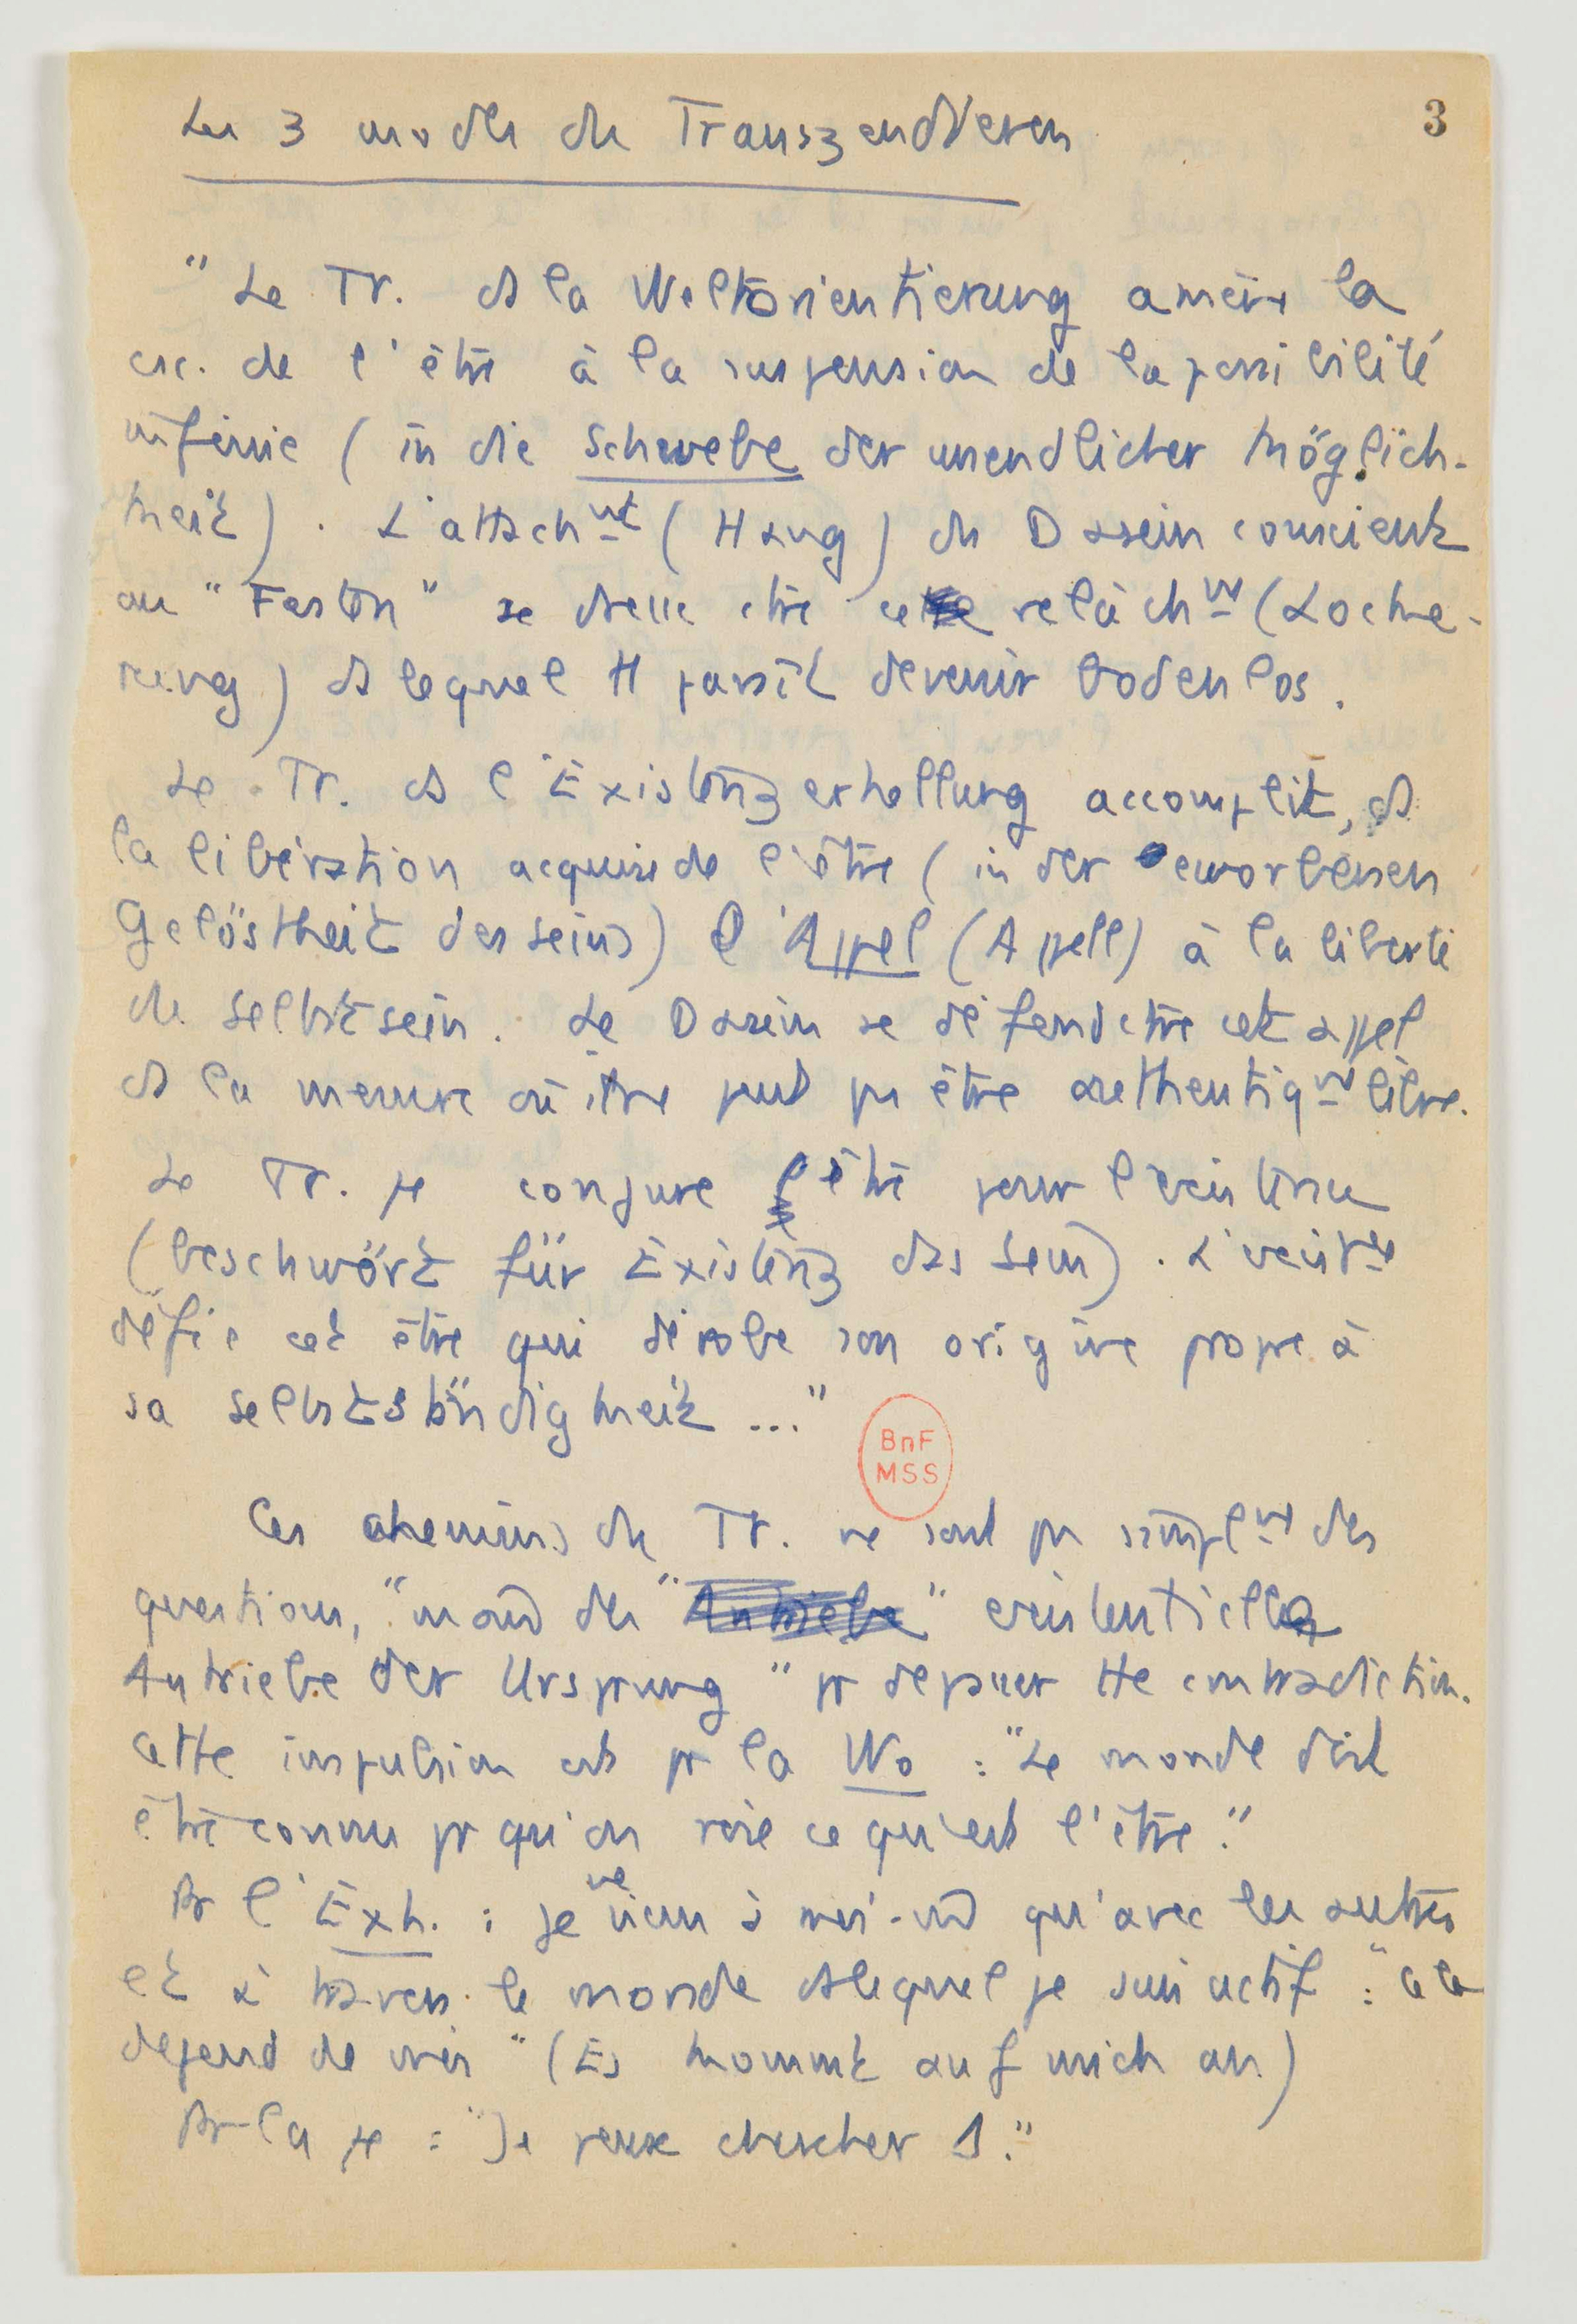 Les 3 modes du Transzendieren
3
"Le Tr. ds la Weltorientierung amène la
csc. de l'être à la suspension de la possibilité
infinie (in die Schwebe der unendlicher Möglich-
keit). L'attachnt (Hang) du Dasein conscient
au "Festen" se dresse ctre ce relâchnt (Locke-
rung) ds lequel il paraît devenir bodenlos.
Le Tr. ds l'Existenzerhellung accomplit, ds
la libération acquise de l'être (in der eworbenen
Gelöstheit des seins) l'Appel (Appell) à la liberté
du Selbstsein. Le Dasein se défend ctre cet appel
ds la mesure où il ne peut pas être authentiqnt libre.
Le Tr. conjure l'être pour l'existence
(beschwört für Existenz das Sein).
défie cet être qui dérobe son origine propre à
sa Selbstständigkeit ..."
BnF
MSS
Ces chemins du Tr. ne sont pas simplnt des
questions, "mais des" existentielles
Antriebe der Ursprung" pr dépasser tte contradiction.
Cette impulsion est pr la Wo : "Le monde doit
être connu pr qu'on voie ce qu'est l'être."
Pr l'Exh. : je ne viens à moi-m qu'avec les autres
et à travers le monde ds lequel je suis actif : "Cela
dépend de moi" (Es kommt auf mich an)
Pr la : "Je peux chercher